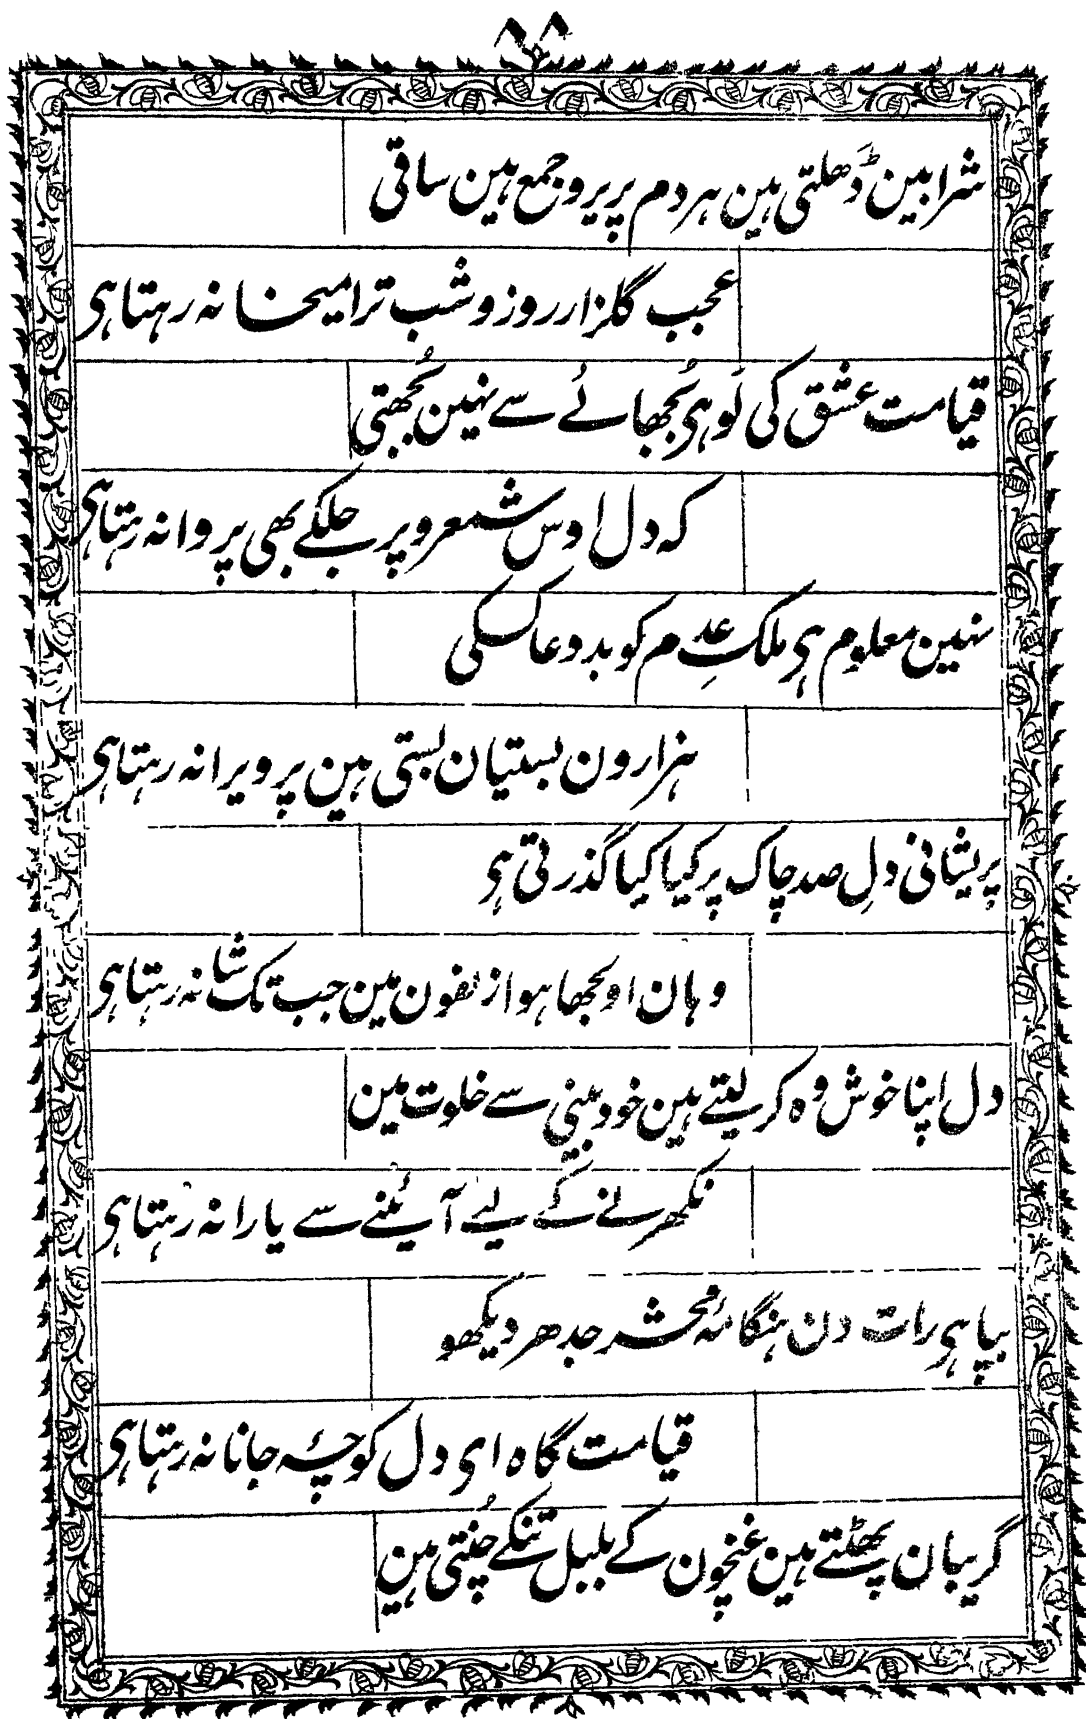 ۸۸
شرابین ڈھلتی ہین ہردم پریرو جمع ہین ساقی
عجب گلزار روز و شب ترا میخانہ رہتا ہی
قیامت عشق کی لَو ہی بُجھائے سے نہین بُجھتی
کہ دل اوس شمعرو پر جلکے بھی پروانہ رہتا ہی
نہین معلوم ہی ملکِ عدم کو بددعا کسکی
ہزارون بستیان بستی ہین پر ویرانہ رہتا ہی
پریشانی دلِ صد چاک پر کیا کیا گذرتی ہی
وہان اولجھا ہوا زلفون مین جب تک شانہ رہتا ہی
دل اپنا خوش وہ کرلیتے ہین خود بینی سے خلوت مین
نکھرنے کے لیے آئینے سے یارانہ رہتا ہی
بپا ہی رات دن ہنگامۂ محشر جدھر دیکھو
قیامت گاہ ای دل کوچۂ جانانہ رہتا ہی
گریبان پھٹتے ہین غنچون کے بلبل تنکے چُنتی ہین